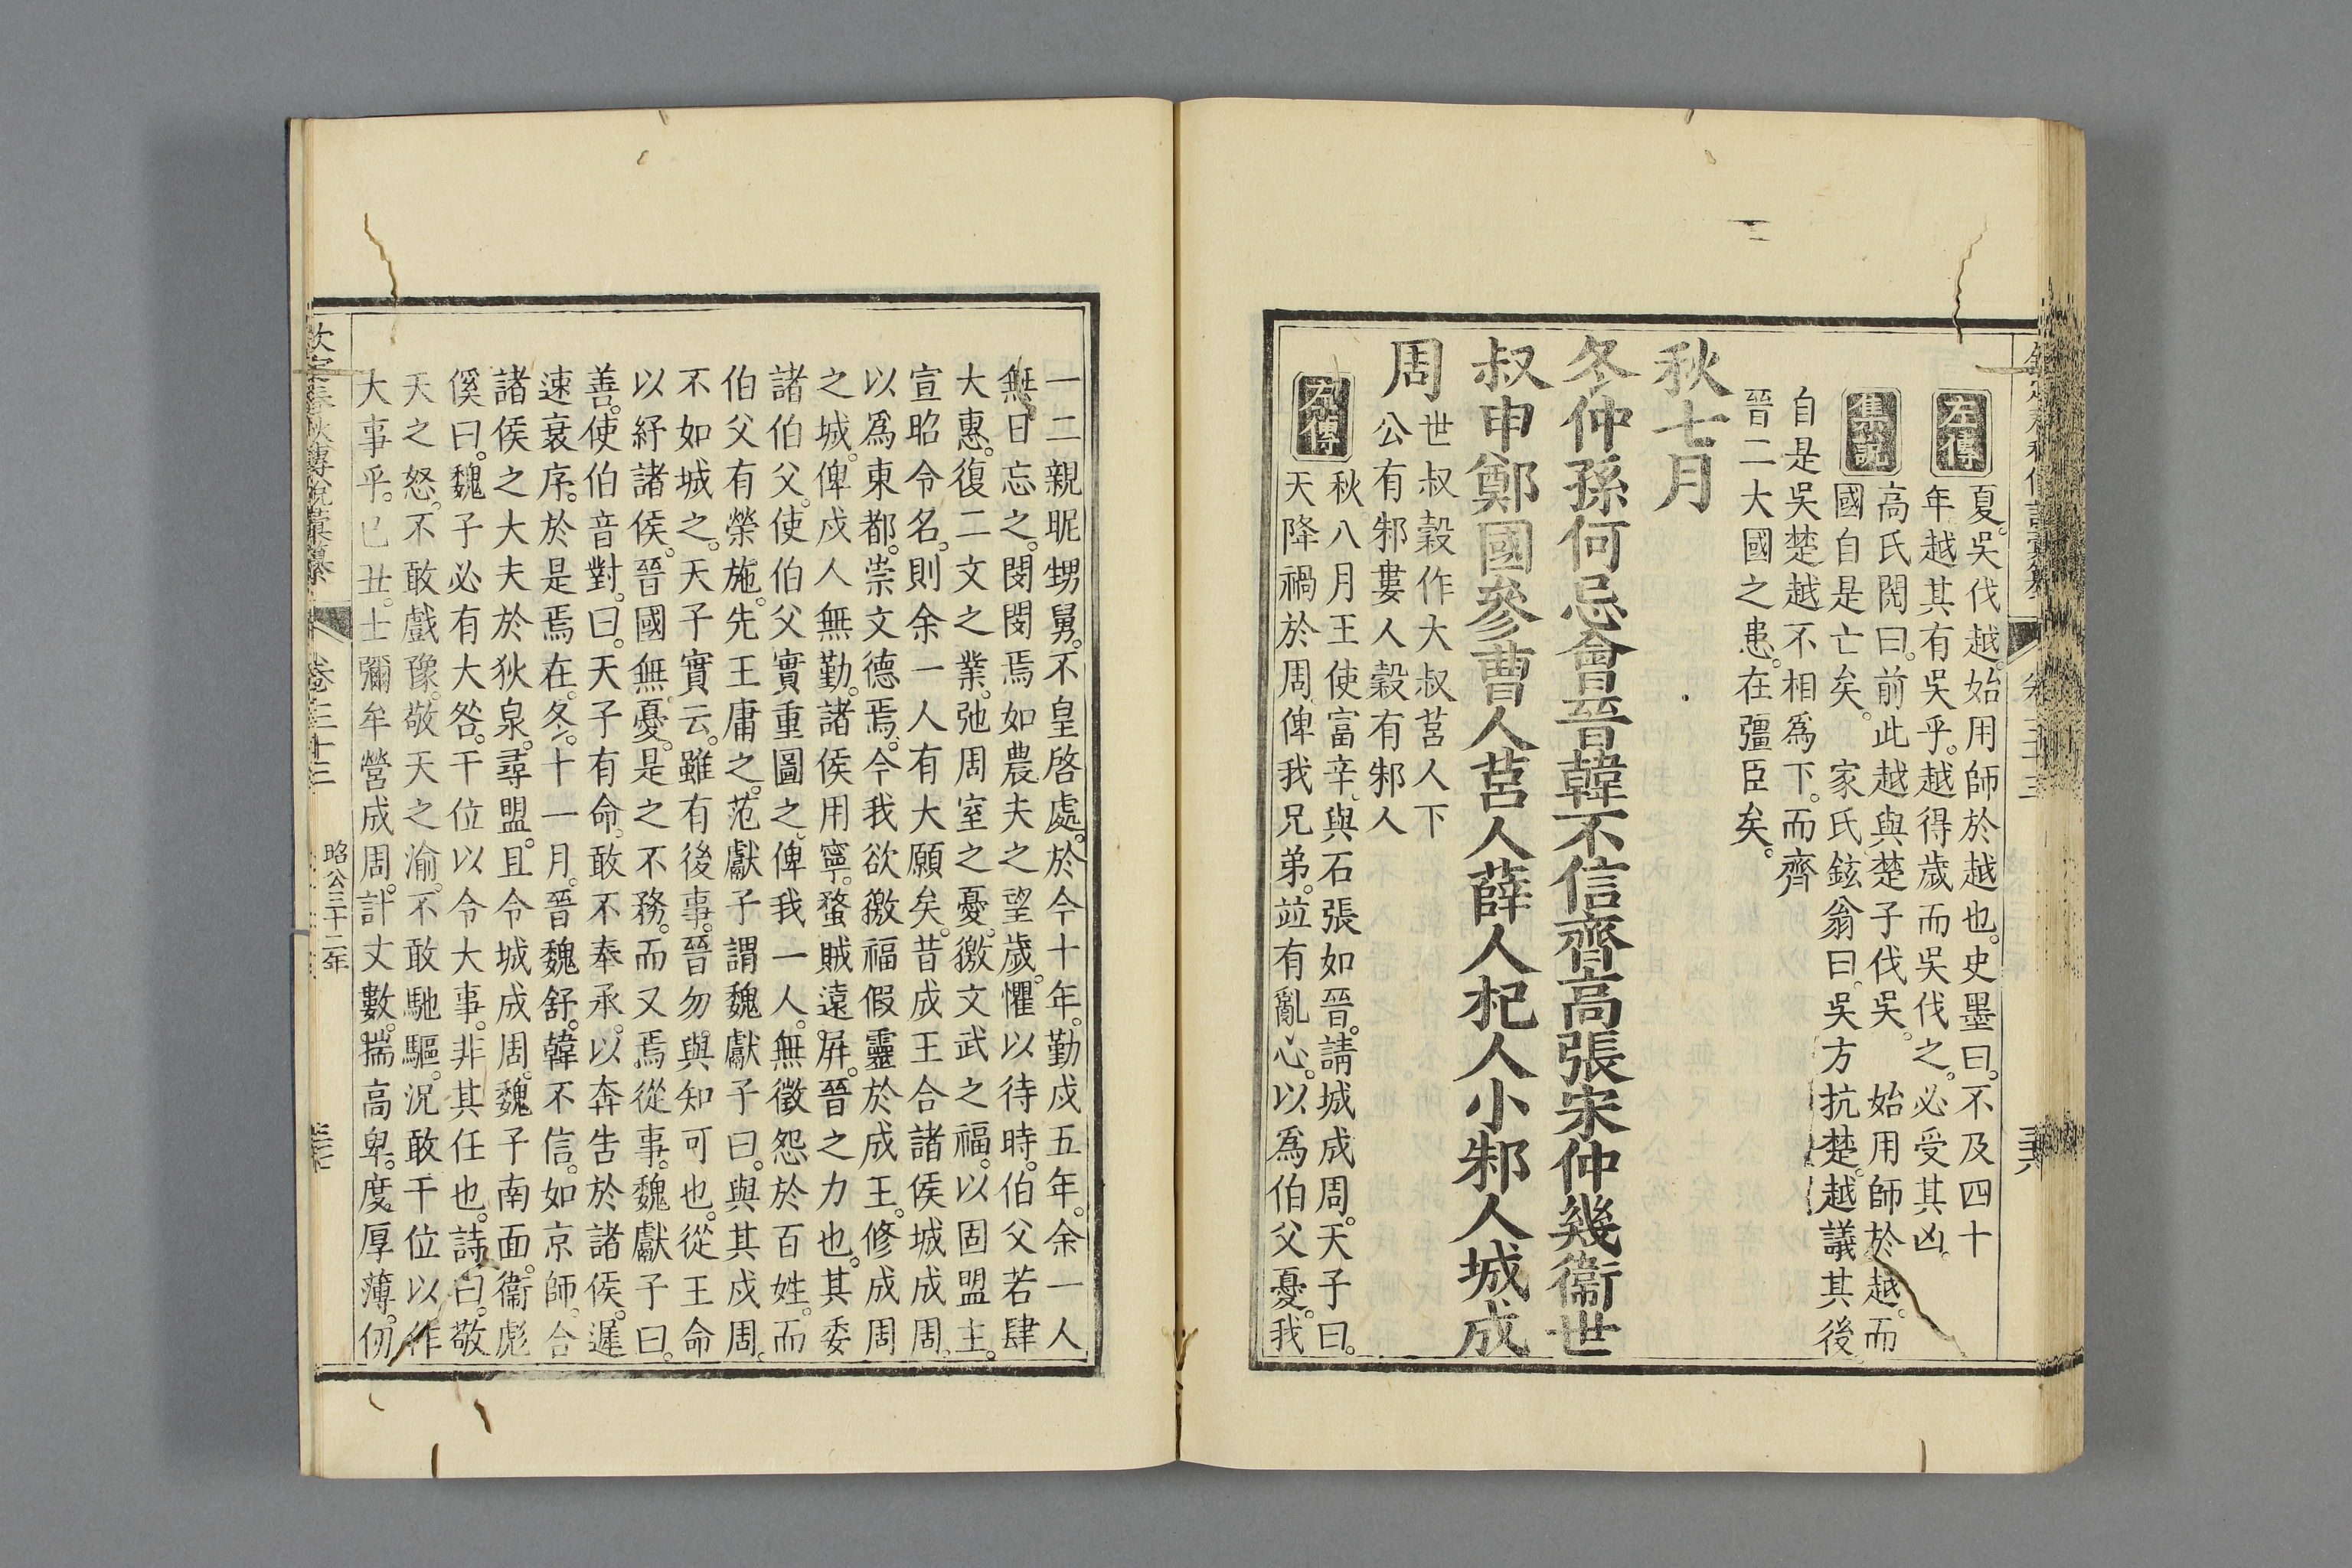 左傳
夏。吳伐越。始用師於越也。史墨曰。不及四十
年越其有吳乎。越得歲而吳伐之。必受其凶。
集說
高氏閌曰。前此越與楚子伐吳。始用師於越。而
國自是亡矣。家氏鉉翁曰。吳方抗楚。越議其後
自是吳楚越不相爲下。而齊
晉二大國之患。在彊臣矣。
秋七月
冬仲孫何忌會晉韓不信齊高張宋仲幾衞世
叔申鄭國參曹人莒人薛人杞人小邾人城成
周
世叔穀作大叔莒人下
公有邾婁人穀有邾人
左傳
秋八月王使富辛與石張如晉。請城成周。天子曰。
天降禍於周。俾我兄弟。竝有亂心。以爲伯父憂。我
一二親昵甥舅。不皇啓處。於今十年。勤戍五年。余一人
無日忘之。閔閔焉如農夫之望歲。懼以待時。伯父若肆
大惠。復二文之業。弛周室之憂。徼文武之福。以固盟主。
宣昭令名。則余一人有大願矣。昔成王合諸侯城成周。
以爲東都。崇文德焉。今我欲徼福假靈於成王。修成周
之城。俾戍人無勤。諸侯用寧。蝥賊遠屏。晉之力也。其委
諸伯父。使伯父實重圖之。俾我一人。無徵怨於百姓。而
伯父有榮施。先王庸之。范獻子謂魏獻子曰。與其戍周。
不如城之。天子實云。雖有後事。晉勿與知可也。從王命
以紓諸侯。晉國無憂。是之不務。而又焉從事。魏獻子曰。
善。使伯音對。曰。天子有命。敢不奉承。以奔吿於諸侯。遲
速衰序。於是焉在。冬。十一月。晉魏舒。韓不信。如京師。合
諸侯之大夫於狄泉。尋盟。且令城成周。魏子南面。衞彪
傒曰。魏子必有大咎。干位以令大事。非其任也。詩曰。敬
天之怒。不敢戲豫。敬天之渝。不敢馳驅。況敢干位以作
大事乎。已丑。士彌牟營成周。計丈數。揣高卑。度厚薄。仞
欽定春秋傳說彙纂
卷三十三
昭公三十二年